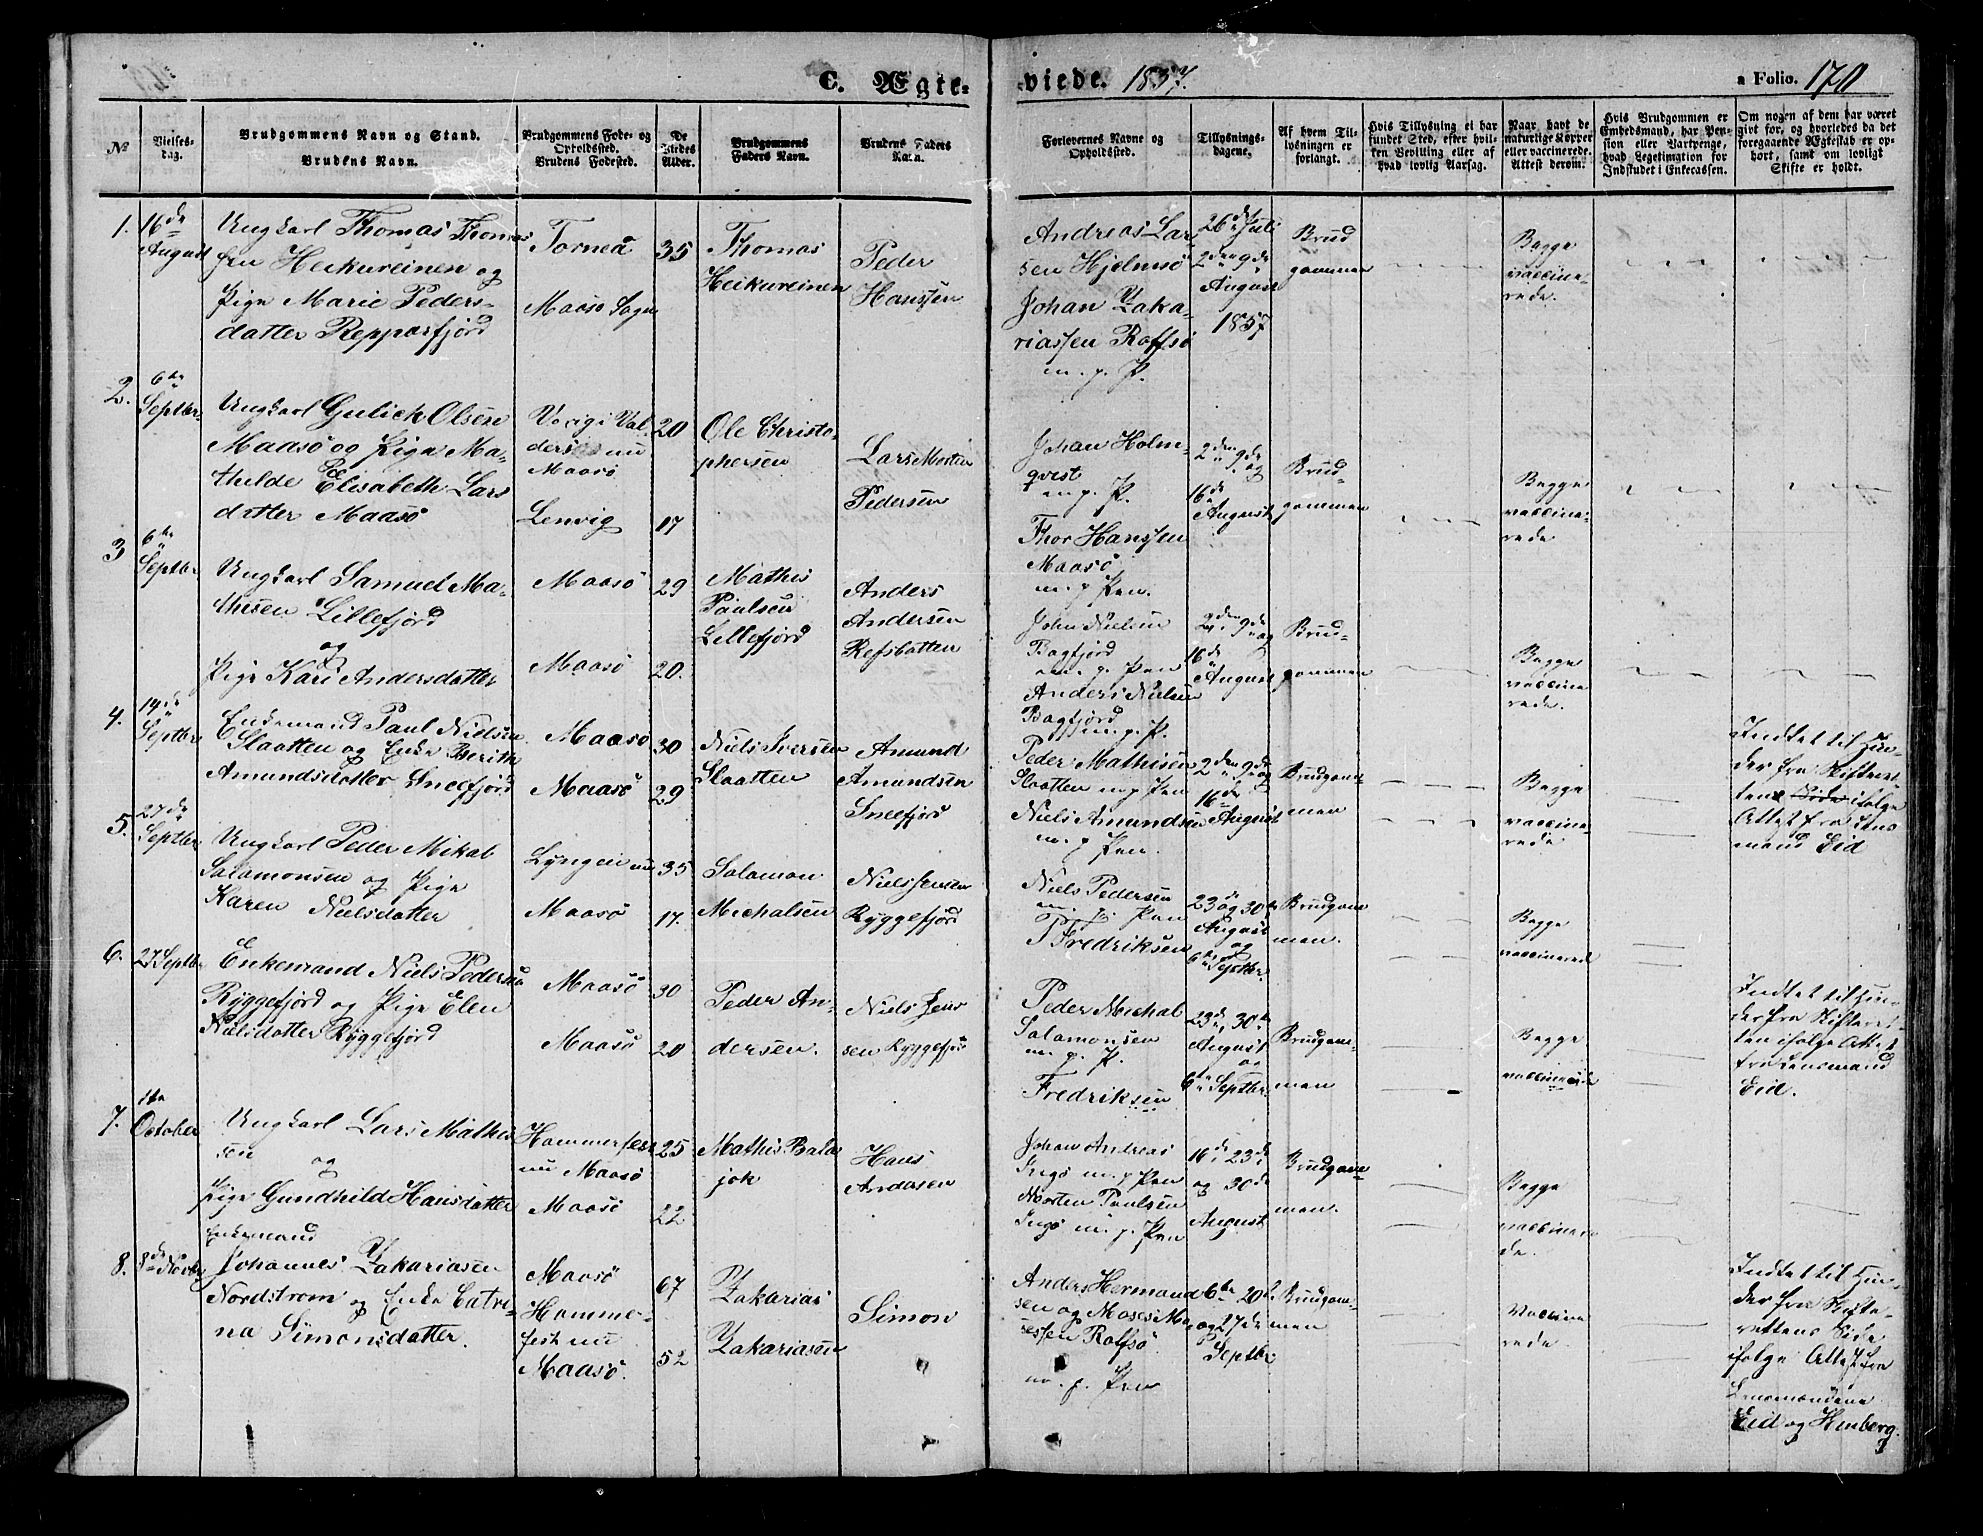 C. Ægte-
viede. 1857.
a Folio. 170
№
Vielses-
dag.
Brudgommens Navn og Stand.
Brudens Navn.
Brudgommens Føde- og
Opholdssted.
Brudens Fødested.
De
Viedes
Alder.
Brudgommens
Faders Navn.
Brudens Faders
Navn.
Forlovernes Navne og
Opholdssted.
Tillysnings-
dagene.
Af hvem Til-
lysningen er
forlangt.
Hvis Tillysning ei har
fundet Sted, efter hvil-
ken Bevilling eller af
hvad lovlig Aarsag.
Naar havt de
naturlige Kopper
eller vaccinerede.
Attest derom.
Hvis Brudgommen er
Embedsmand, har Pen-
sion eller Vartpenge,
hvad Legetimation for
Indskudet i Enkecassen.
Om nogen af dem har været
gift før, og hvorledes da det
foregaaende Ægteskab er op-
hørt, samt om lovligt
Skifte er holdt.
1.
16de
August
Ungkarl Thomas Thomas
sen Heikureinen og
Pige Marie Peders-
datter Repparfjord
Torneå
Maasø Sogn
35
Thomas
Heikureinen
Peder
Hanssen
Andreas Lar
sen Hjelmsø
Johan Zaka-
riassen Rolfsø
m. p. P.
26de Juli
2den 9de
August
1857
Brud
gommen
Begge
vaccine-
rede.
2.
6te
Septbr.
Ungkarl Gulick Olsen
Maasø og Pige Ma-
thilde Elisabeth Lars
datter Maasø
Vang i Val
ders nu
Maasø
Lenvig
20
17
Ole Christo-
phersen
Lars Morten
Pedersen
Johan Holm-
qvest
m. p. P.
Thor Hanssen
Maasø
m. p Pen.
2den 9de og
16de
August
Brud-
gommen
Begge
vaccine-
rede
3
6te
Septbr
Ungkarl Samuel Ma-
thisen Lillefjord
og
Pige Kari Andersdatter
Maasø
Maasø
29
20.
Mathis
Paulsen
Lillefjord
Anders
Andersen
Refsbotten
John Nielsen
Bagfjord
m. p. Pen
Anders Nielsen
Bagfjord
m. p. P.
2den 9de og
16de
August
Brud-
gommen
Begge
vaccine
rede.
4.
14de
Septbr
Enkemand Paul Nielsen
Slaatten og Enke Berith
Amundsdatter Sneefjord
Maasø
Maasø
30
29
Niels Iversen
Slaatten
Amund
Amundsen
Sneefjord
Peder Mathisen
Slaatten m. p Pen
Niels Amundsen
m. p Pen.
2den 9de og
16de
August
Brudgom-
men
Begge
vaccine-
rede
Indtet til Hin-
der fra Skifteret-
tens Side ifølge
Attest fra Lens
mand Eid
5.
27de
Septbr
Ungkarl Peder Mikal
Salamonsen og Pige
Karen Nielsdatter
Lyngen nu
Maasø
35
17.
Salamon
Michalsen
Niels Jensen
Ryggefjord
Niels Pedersen
m. p. Pen
P Fredriksen
23de og 30te
August
og
6te Septbr.
Brudgom
men.
Begge
vaccinerede
6.
27 Septbr
Enkemand Niels Pedersen
Ryggefjord og Pige Elen
Nielsdatter Ryggefjord
Maasø
Maasø
30
20
Peder An-
dersen.
Niels Jens
sen Ryggefjord
Peder Michal
Salamonsen
m. p. P.
Fredriksen
23de, 30te
August
og
6te Septbr.
Brudgom-
men
Begge
vaccinerede
Indtet til Hin-
der fra Skifteret-
ten ifølge Attest
fra Lensmand
Eid.
7.
1ste
October
Ungkarl Lars Mathis
sen
og
Pige Gundhild Hansdatter
Hammerfest
nu Maasø
Maasø
25
22
Mathis Bala
jok
Hans
Andersen
Johan Andreas
Ingø m. p Pen
Morten Paulsen
Ingø m. p. Pen
16de 23de
og 30te
August
Brudgom-
men.
Begge
vaccinere
de.
8.
8de Novbr
Enkemand
Johannes Zakariasen
Nordstrøm og Enke Catri-
na Simonsdatter.
Maasø
Hammer-
fest nu
Maasø.
67
52
Zakarias
Zakariasen
Simon
Anders Hermand
sen og Moses Mo
sessen Rolfsø
m. p. Pen
6te 20de
og 27de
Septbr
Brudgom-
men
Vaccine
rede.
Indtet til Hin-
der fra Skifte-
rettens Side
ifølge Attest fra
Lensmændene
Eid og Hinberg.